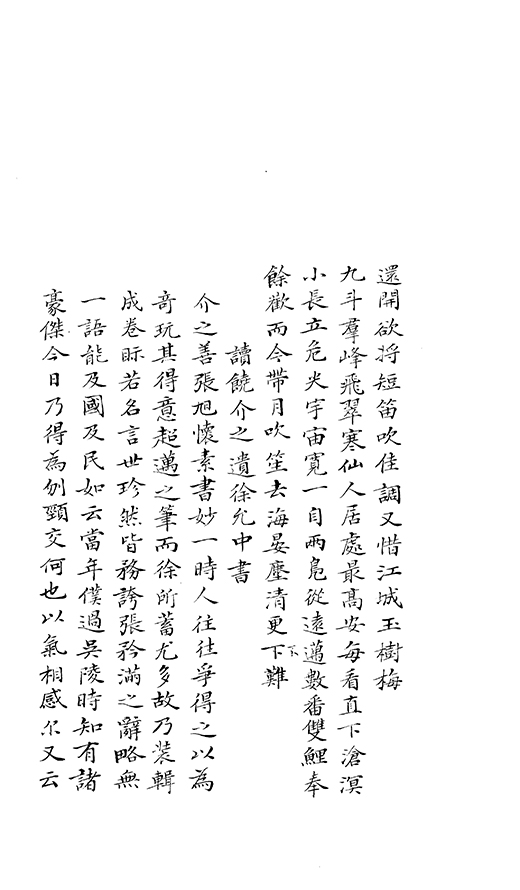 還開欲將短笛吹佳調又惜江城玉樹梅
九斗羣峰飛翠寒仙人居處最髙安每看直下滄溟
小長立危尖宇宙寬一自兩鳧從遠邁數番雙鯉奉
餘歡而今帶月吹笙去海晏塵清更下難
讀饒介之遺徐允中書
介之善張旭懷素書妙一時人往往爭得之以為
奇玩其得意超邁之筆而徐所蓄尤多故乃裝輯
成卷眎若名言世珍然皆務誇張矜滿之辭略無
一語能及國及民如云當年僕過吳陵時知有諸
豪傑今日乃得為刎頸交何也以氣相感尔又云